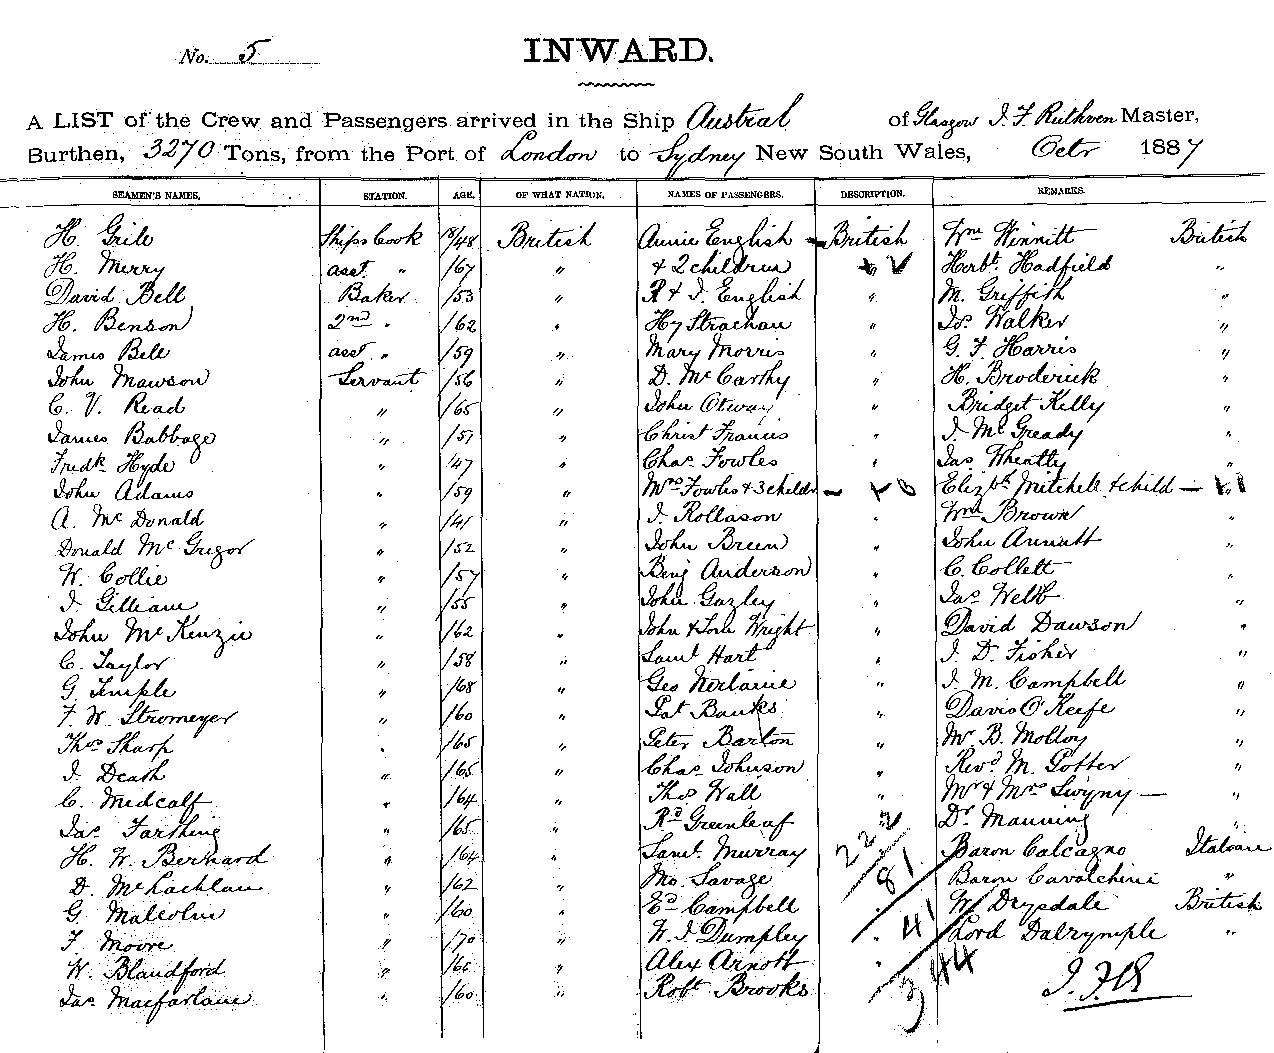 No. 5
INWARD.
A LIST of the Crew and Passengers arrived in the Ship Austral of Glasgow J. F. Ruthven Master,
Burthen, 3270 Tons, from the Port of London to Sydney New South Wales, Octr 1887
SEAMEN'S NAMES. STATION. AGE. OF WHAT NATION. NAMES OF PASSENGERS. DESCRIPTION. REMARKS.
H. Grile Ships Cook /48 British Annie English British Wm Winnitt British
H. Merry asst. " /67 " & 2 children " Herbt. Hadfield "
David Bell Baker /53 " R & J. English " M. Griffith "
H. Benson 2nd " /62 " Hy Strachan " Jos. Walker "
James Bell asst. " /59 " Mary Morris " G. F. Harris "
John Mawson Servant /56 " D. McCarthy " H. Broderick "
C. V. Read " /65 " John Otway " Bridget Kelly "
James Babbage " /51 " Christ Francis " J. McGready "
Fredk Hyde " /47 " Chas. Fowles " Jas Wheatly "
John Adams " /59 " Mrs Fowles & 3 childn — Elizbth Mitchell & child — "
A. Mc Donald " /41 " J. Rollason " Wm Brown "
Donald McGregor " /52 " John Breen " John Annatt "
W. Collie " /57 " Benj Anderson " C. Collett "
J. Gilliam " /55 " John Gazley " Jas Webb "
John McKenzie " /62 " John & Wright " David Dawson "
C. Taylor " /58 " Saml Hart " J. D. Fisher "
G. Temple " /68 " Geo " J. M. Campbell "
F. W. Stromeyer " /60 " Pat Banks " David O'Keefe "
Thos Sharp " /65 " Peter Barton " Mr. B. Molloy "
J. Death " /65 " Chas Johnson " Revd. M. Potter "
C. Medcalf " /64 " Thos Wall " Mr & Mrs Swyny — "
Jas. Farthing " /65 " Rd Greenleaf Dr. Manning "
H. W. Bernard " /64 " Saml. Murray 222 Baron Calcagno Italian
D. McLachlan " /62 " Jno. Savage 81 Baron Cavalchini "
G. Malcolm " /60 " Ed Campbell W. Drysdale British
F. Moore " /70 " W. J. Dumpley " 41 Lord Dalrymple "
W. Blandford " " Alex Arnott " 344 J. F. R
Jas. Macfarlane " /60 " Robt Brooks